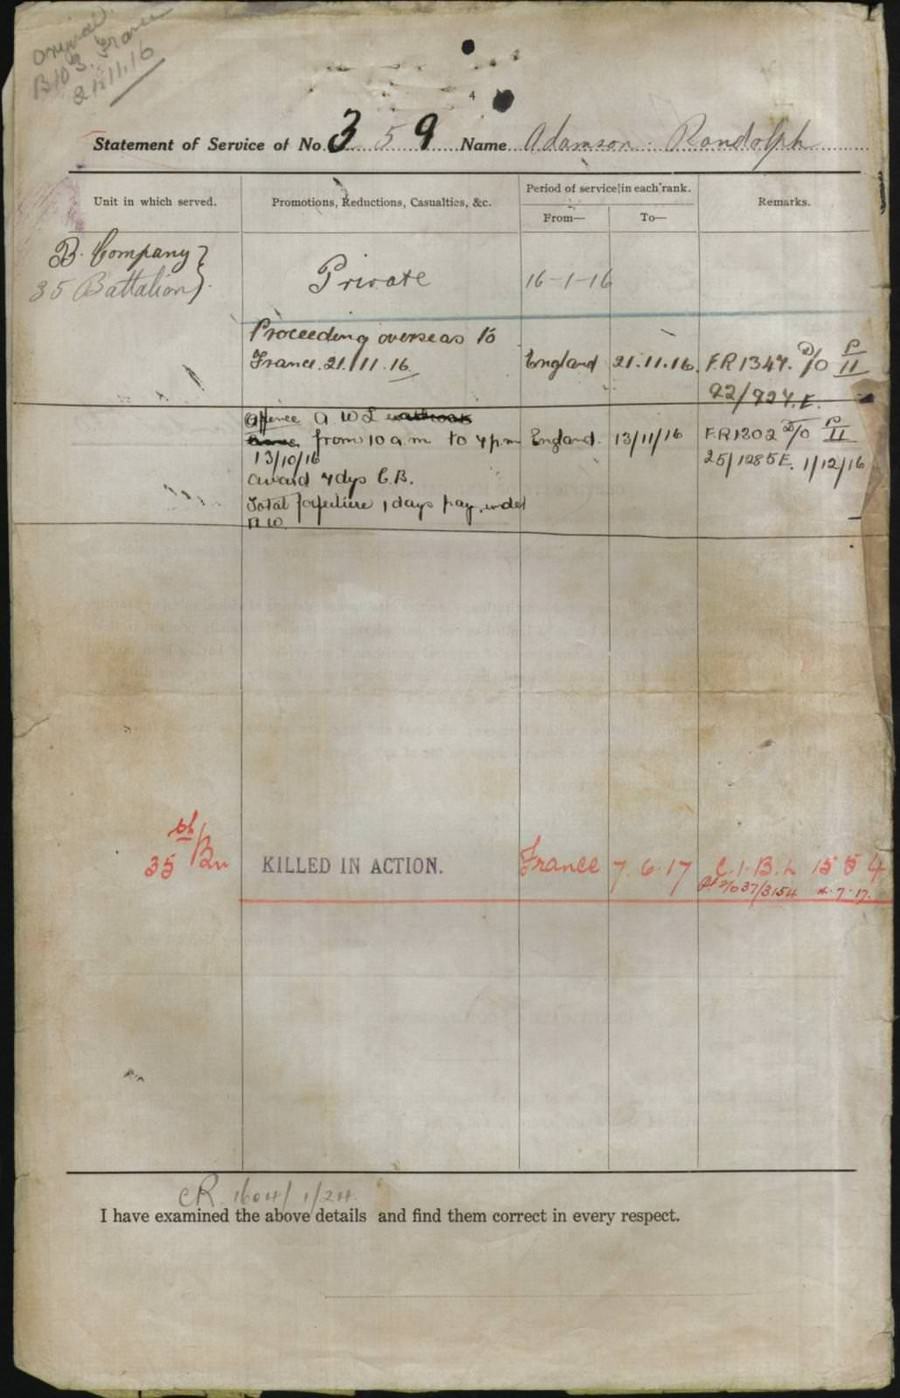 Original
B103. France
21.11.16
4
Statement of Service of No. 359 Name Adamson Randolph
Unit in which served.
Promotions, Reductions, Casualties, &c.
Period of service in each rank.
From—
To—
Remarks.
B. Company }
35 Battalion }
Private
16-1-16
Proceeding overseas to
France. 21/11.16
England
21.11.16.
F.R 1347. D/O P/II
92/924.E.
Offence A W L
from 10 a m to 4 pm
13/10/16
award 7dys C.B.
Total forfeiture 1 days pay under
R.W.
England.
13/11/16
F.R 1302 D/O P/II
25/1285E. 1/12/16
35th Bn
KILLED IN ACTION.
France
7.6.17
C.I.B.L 1554
37/3154 4.7.17.
CR. 1604/1/24
I have examined the above details and find them correct in every respect.